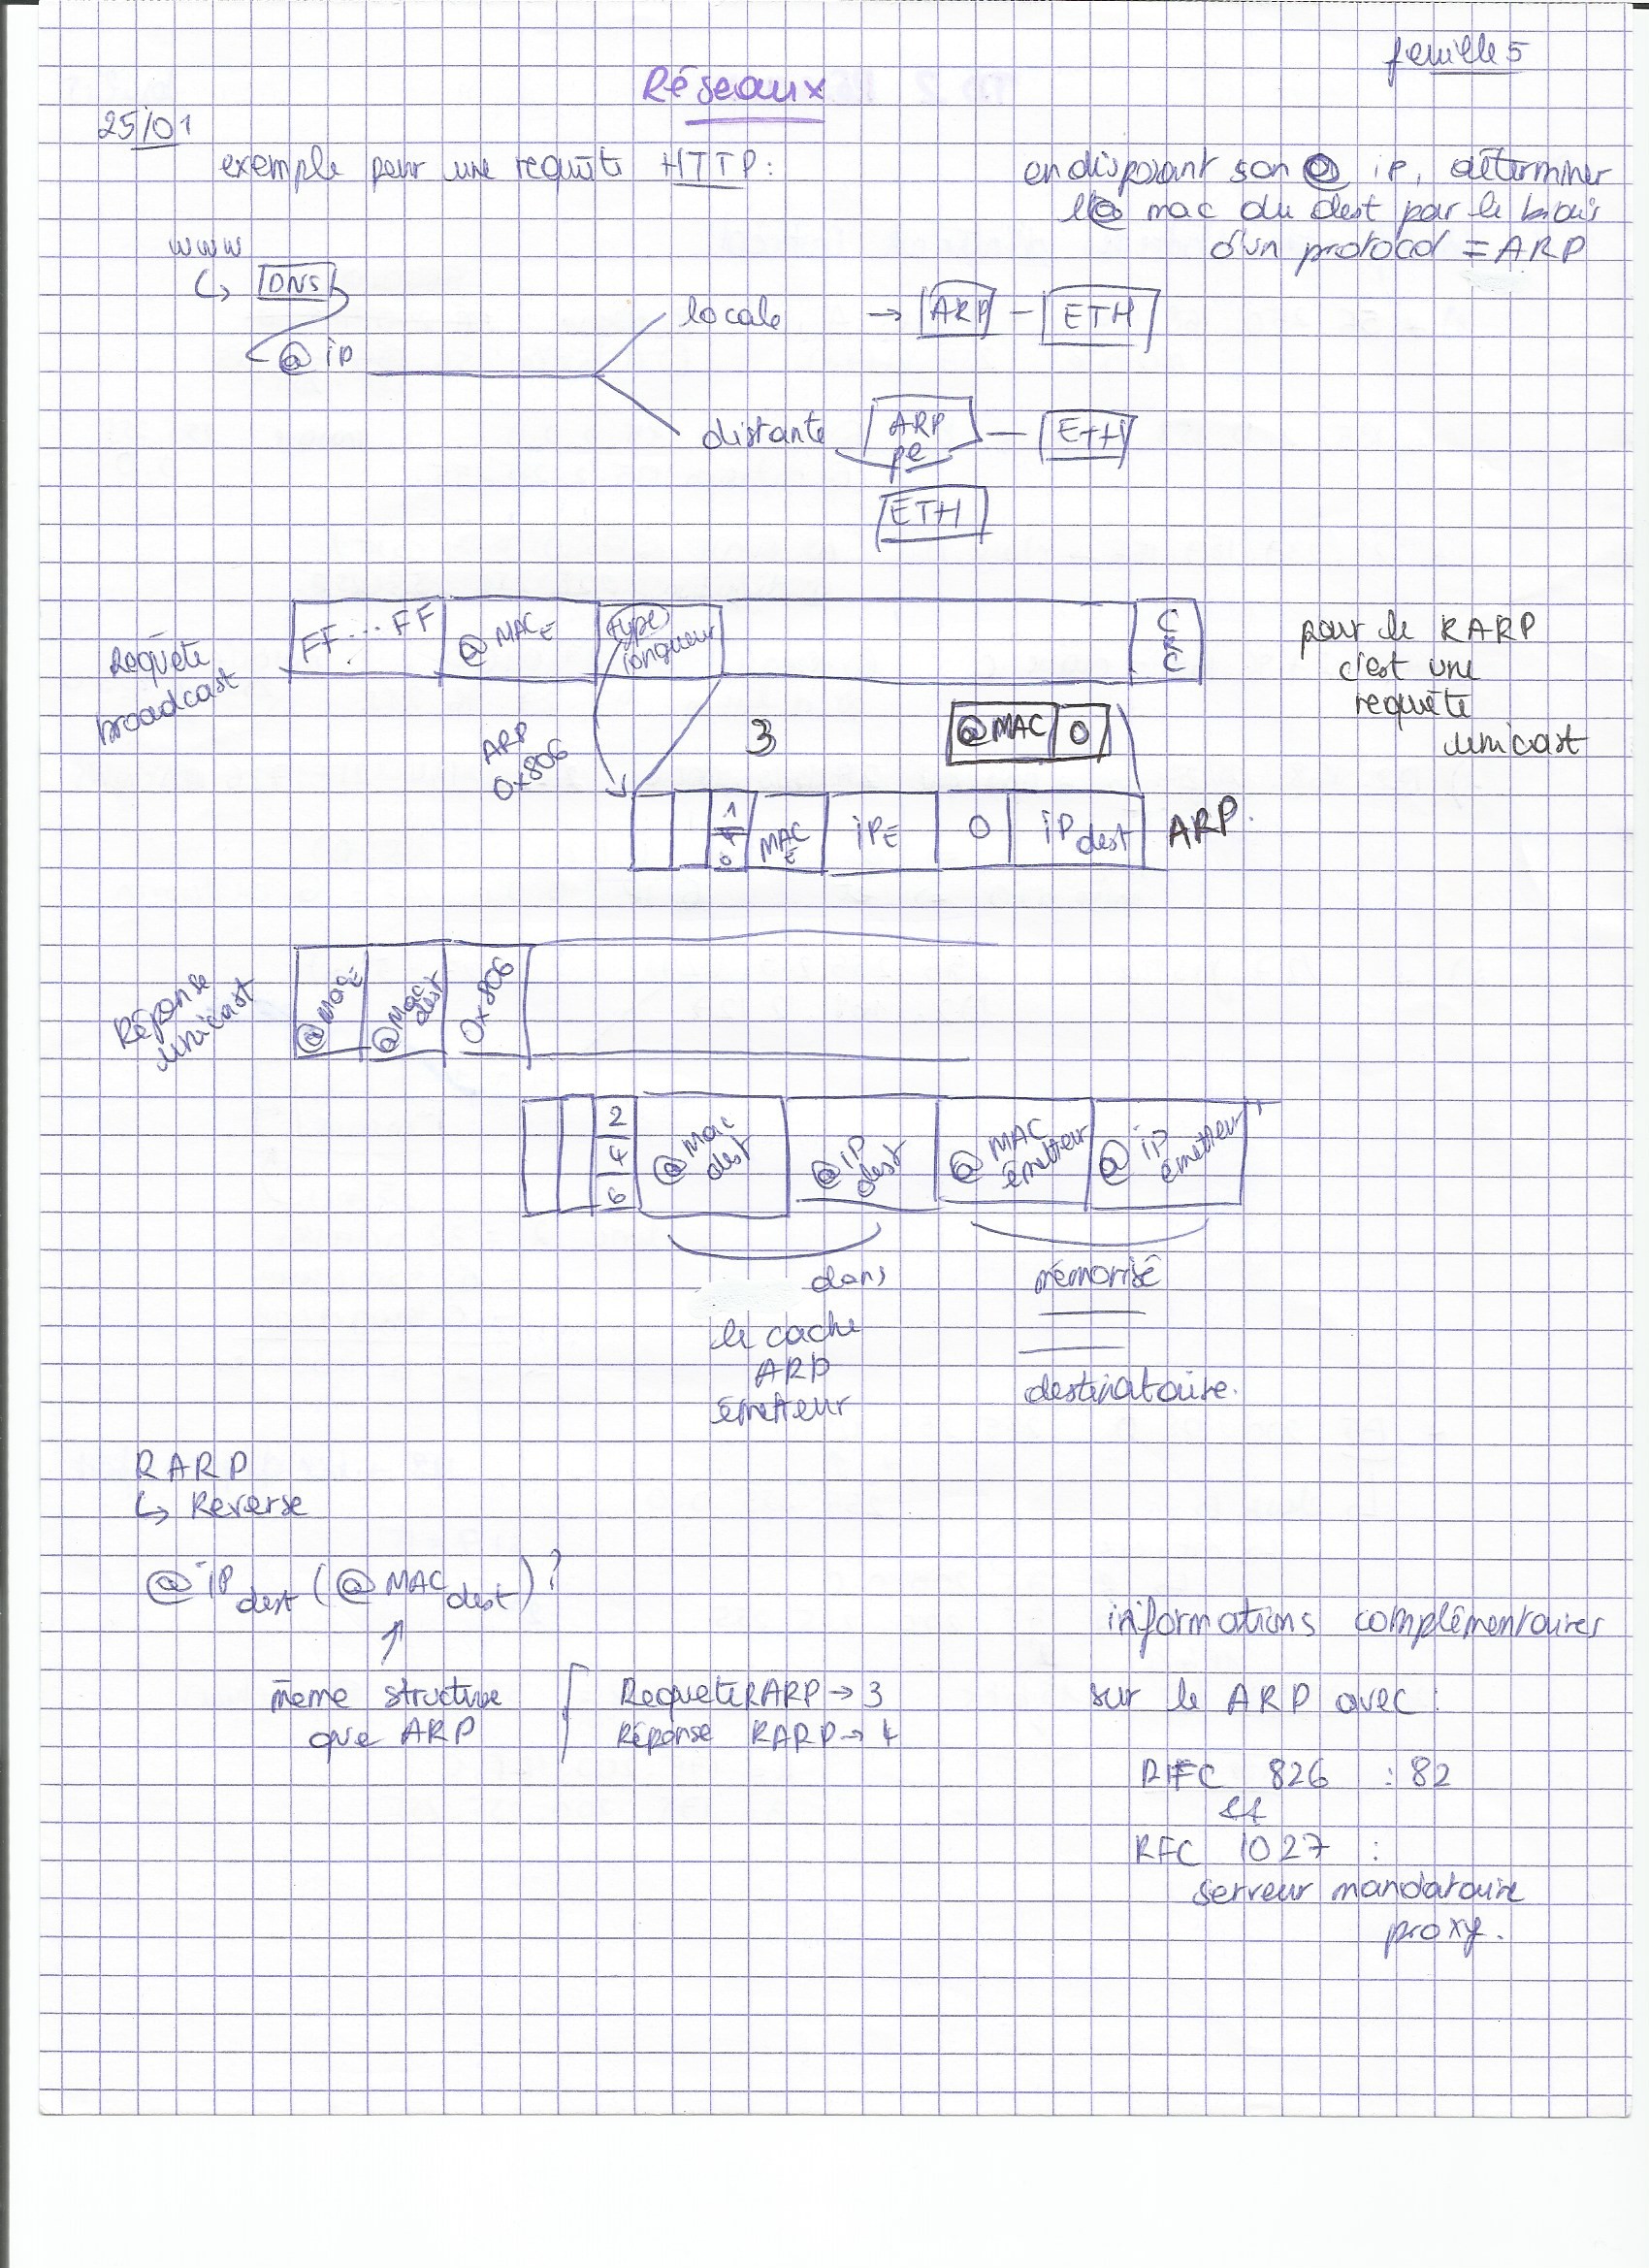 feuille 5
Réseaux
25/01
exemple pour une requête HTTP:
en disposant son @ ip, déterminer
l'@ mac du dest par le biais
d'un protocol = ARP
www
↳ DNS
@ ip
locale → ARP - ETH
distante ARP - ETH
pe
ETH
Requête
broadcast
FF...FF @MAC E type longueur CRC
pour le RARP
c'est une
requête
unicast
ARP
0x806
3
@MAC 0
1 MAC E iP E 0 iP dest ARP.
Réponse
unicast
@Mac E @Mac dest 0x806
2
4
6
@Mac dest @iP dest @MAC émetteur @iP émetteur
dans
le cache
ARP
émetteur
mémorisé
destinataire.
RARP
↳ Reverse
@iP dest (@MAC dest)?
même structure
que ARP
Requete RARP → 3
Réponse RARP → 4
informations complémentaires
sur le ARP avec :
RFC 826 : 82
et
RFC 1027 :
serveur mandataire
proxy.